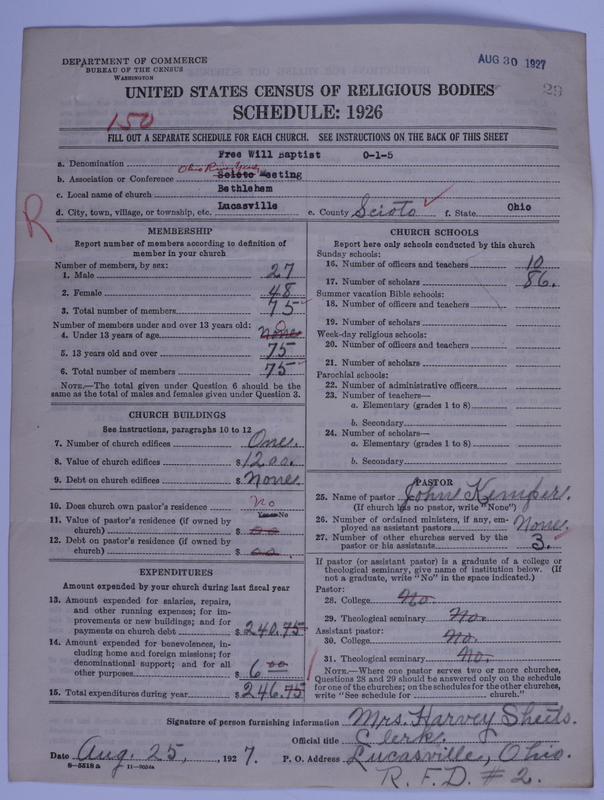 DEPARTMENT OF COMMERCE
BUREAU OF THE CENSUS
WASHINGTON
AUG 30 1927
29
UNITED STATES CENSUS OF RELIGIOUS BODIES
SCHEDULE: 1926
150
FILL OUT A SEPARATE SCHEDULE FOR EACH CHURCH. SEE INSTRUCTIONS ON THE BACK OF THIS SHEET
a. Denomination Free Will Baptist 0-1-5
Ohio River
b. Association or Conference Scioto Meeting
c. Local name of church Bethlehem
d. City, town, village, or township, etc. Lucasville e. County Scioto f. State Ohio
R
MEMBERSHIP
Report number of members according to definition of
member in your church
Number of members, by sex:
1. Male 27
2. Female 48
3. Total number of members 75
Number of members under and over 13 years old:
4. Under 13 years of age None 0
5. 13 years old and over 75
6. Total number of members 75
NOTE.—The total given under Question 6 should be the
same as the total of males and females given under Question 3.
CHURCH BUILDINGS
See instructions, paragraphs 10 to 12
7. Number of church edifices One.
8. Value of church edifices $1200.
9. Debt on church edifices $None
10. Does church own pastor's residence No
Yes or No
11. Value of pastor's residence (if owned by
church) $ 00
12. Debt on pastor's residence (if owned by
church) $ 00
EXPENDITURES
Amount expended by your church during last fiscal year
13. Amount expended for salaries, repairs,
and other running expenses; for im-
provements or new buildings; and for
payments on church debt $240.75
14. Amount expended for benevolences, in-
cluding home and foreign missions; for
denominational support; and for all
other purposes $ 6 00
15. Total expenditures during year $246.75
CHURCH SCHOOLS
Report here only schools conducted by this church
Sunday schools:
16. Number of officers and teachers 10
17. Number of scholars 86.
Summer vacation Bible schools:
18. Number of officers and teachers
19. Number of scholars
Week-day religious schools:
20. Number of officers and teachers
21. Number of scholars
Parochial schools:
22. Number of administrative officers
23. Number of teachers—
a. Elementary (grades 1 to 8)
b. Secondary
24. Number of scholars—
a. Elementary (grades 1 to 8)
b. Secondary
PASTOR
25. Name of pastor John Kemper.
(If church has no pastor, write "None")
26. Number of ordained ministers, if any, em-
ployed as assistant pastors None.
27. Number of other churches served by the
pastor or his assistants 3.
If pastor (or assistant pastor) is a graduate of a college or
theological seminary, give name of institution below. (If
not a graduate, write "No" in the space indicated.)
Pastor:
28. College No.
29. Theological seminary No.
Assistant pastor:
30. College No.
31. Theological seminary No.
NOTE.—Where one pastor serves two or more churches,
Questions 28 and 29 should be answered only on the schedule
for one of the churches; on the schedules for the other churches,
write "See schedule for church."
Signature of person furnishing information Mrs. Harvey Sheets.
Official title Clerk.
Date Aug. 25, 1927. P. O. Address Lucasville, Ohio.
8-5518 a 11-9034a
R. F. D. # 2.